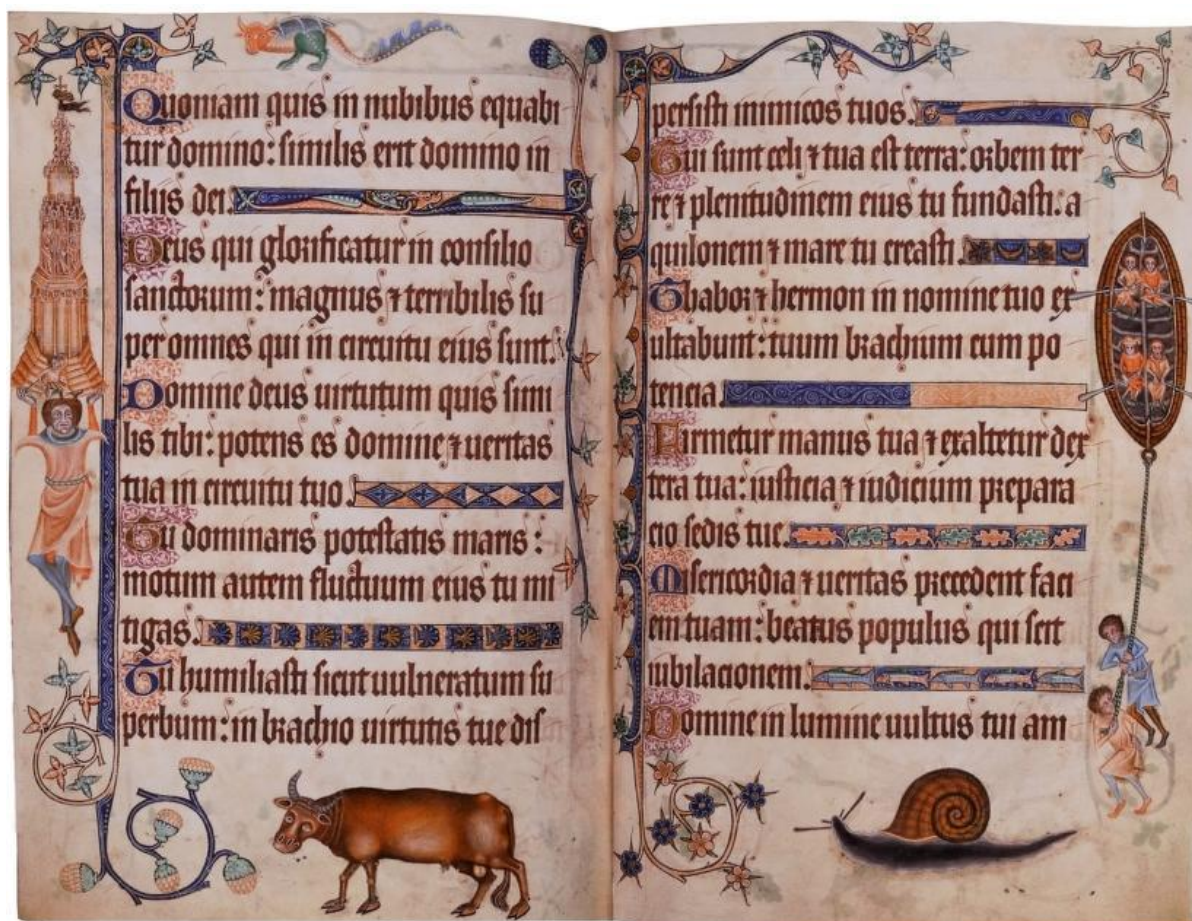 Quoniam quis in nubibus equabi
tur domino: similis erit domino in
filiis dei.
Deus qui glorificatur in consilio
sanctorum: magnus ⁊ terribilis su
per omnes qui in circuitu eius sunt.
Domine deus uirtutum quis simi
lis tibi: potens es domine ⁊ ueritas
tua in circuitu tuo.
Tu dominaris potestatis maris:
motum autem fluctuum eius tu mi
tigas.
Tu humiliasti sicut uulneratum su
perbum: in brachio uirtutis tue dis
persisti inimicos tuos.
Tui sunt celi ⁊ tua est terra: orbem ter
re ⁊ plenitudinem eius tu fundasti: a
quilonem ⁊ mare tu creasti.
Thabor ⁊ hermon in nomine tuo ex
ultabunt: tuum brachium cum po
tencia.
Firmetur manus tua ⁊ exaltetur dex
tera tua: iusticia ⁊ iudicium prepara
cio sedis tue.
Misericordia ⁊ ueritas precedent faci
em tuam: beatus populus qui scit
iubilacionem.
Domine in lumine uultus tui am